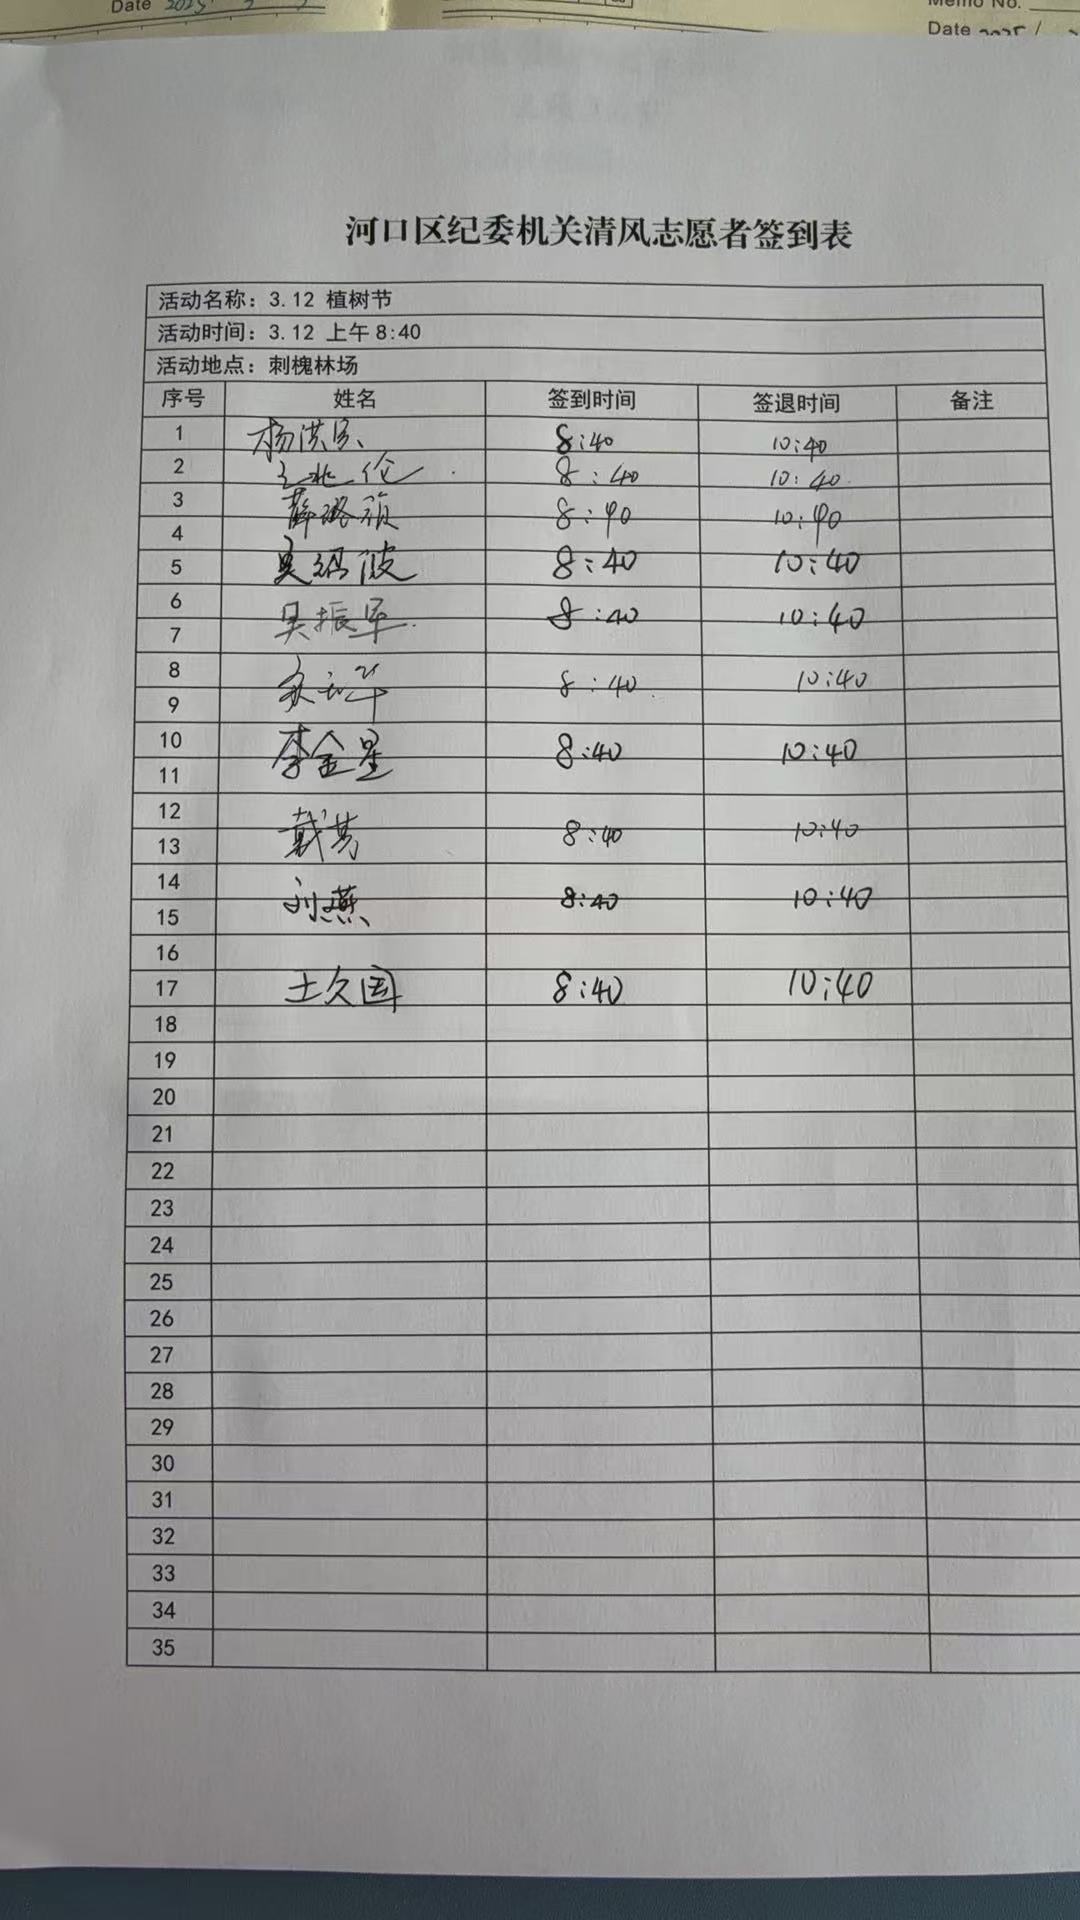 Date 2025
Memo No.
Date 2025/
河口区纪委机关清风志愿者签到表
活动名称：3.12 植树节
活动时间：3.12 上午8:40
活动地点：刺槐林场
序号 姓名 签到时间 签退时间 备注
1 杨洪民 8:40 10:40
2 王兆伦 8:40 10:40
3 薛璐颖 8:40 10:40
4
5 吴绍波 8:40 10:40
6 吴振军 8:40 10:40
7
8 8:40 10:40
9
10 李金星 8:40 10:40
11
12
13 戴芳 8:40 10:40
14
15 刘燕 8:40 10:40
16
17 王久国 8:40 10:40
18
19
20
21
22
23
24
25
26
27
28
29
30
31
32
33
34
35